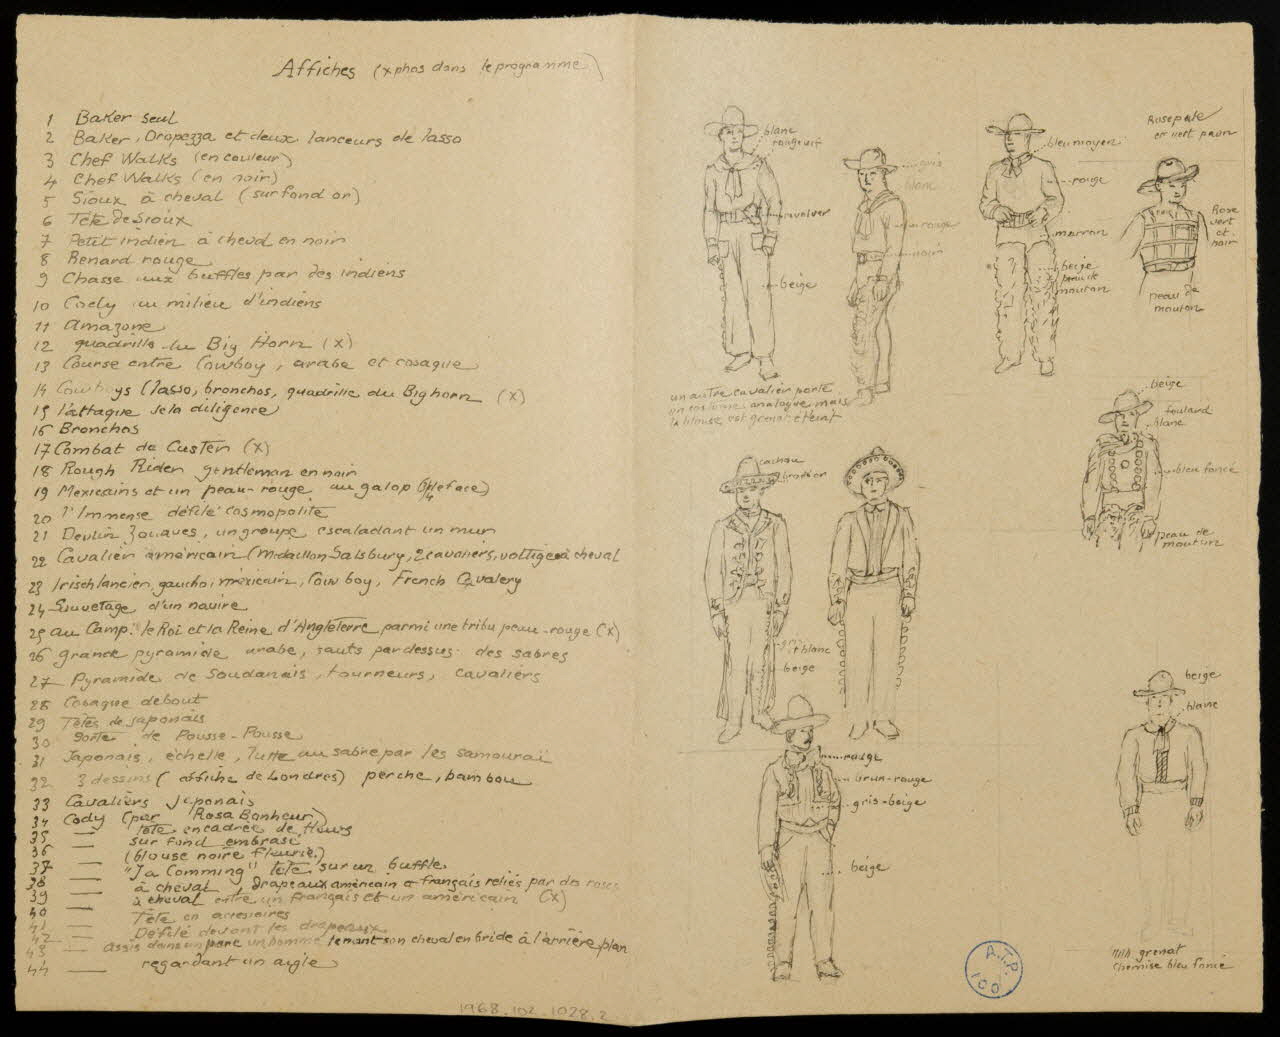 Affiches (x phos dans le programme)
1 Baker seul
2 Baker, Oropezza et deux lanceurs de lasso
3 Chef Walks (en couleur)
4 Chef Walks (en noir)
5 Sioux à cheval (sur fond or)
6 Tête de Sioux
7 Petit indien à cheval en noir
8 Renard rouge
9 Chasse aux buffles par des indiens
10 Cody au milieu d'indiens
11 Amazone
12 quadrille du Big Horn (x)
13 Course entre Cowboy, arabe et cosaque
14 Cowboys (lasso, bronchos, quadrille du Bighorn (x)
15 l'attaque de la diligence
16 Bronchos
17 Combat de Custer (x)
18 Rough Rider gentleman en noir
19 Mexicains et un peau-rouge au galop
20 l'Immense défilé cosmopolite
21 Devlin Zouaves, un groupe escaladant un mur
22 Cavalier américain (Médaillon Salsbury, 2 cavaliers, voltige à cheval
23 Irischlancier, gaucho, mexicain, Cow boy, French Cavalery
24 Sauvetage d'un navire
25 au Camp. le Roi et la Reine d'Angleterre parmi une tribu peau-rouge (x)
26 grande pyramide arabe, sauts par dessus des sabres
27 Pyramide de Soudanais, tourneurs, cavaliers
28 Cosaque debout
29 Têtes de japonais
30 sorte de Pousse-Pousse
31 Japonais, échelle, lutte au sabre par les samouraï
32 3 dessins (affiche de Londres) perche, bambou
33 Cavaliers japonais
34 Cody (par Rosa Bonheur)
35 — tête encadrée de fleurs
36 — sur fond embrasé
(blouse noire fleurie)
37 — "Ja Comming" tête sur un buffle
38 — à cheval, drapeaux américain et français reliés par des roses
39 — à cheval entre un français et un américain (x)
40 — Tête en
41 — Défilé devant les drapeaux
42 —
43 — assis dans un parc un homme tenant son cheval en bride à l'arrière plan
44 — regardant un aigle
blanc
rouge vif
revolver
beige
gris
blanc
rouge
noir
un autre cavalier porte
un costume analogue mais
la blouse est grenat
bleu moyen
rouge
marron
beige
peau de
mouton
Rose pale
et vert paon
Rose
vert
et
noir
peau de
mouton
beige
foulard
blanc
bleu foncé
peau de
mouton
cachou
gris
blanc
beige
rouge
brun-rouge
gris-beige
beige
beige
blanc
grenat
chemise bleu foncé
A.T.P.
100
1968.102.1028.2